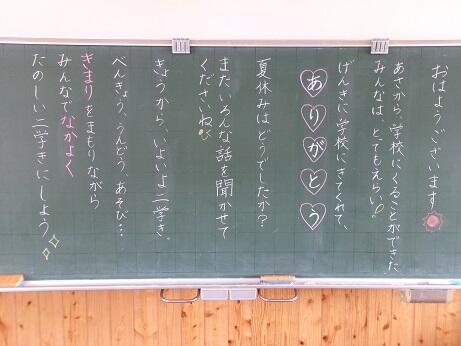 おはようございます
あさから、学校にくることができた
みんなは、とてもえらい!
げんきに学校にきてくれて、
ありがとう
夏休みはどうでしたか?
またいろんな話を聞かせて
くださいね♪
きょうから、いよいよ二学き。
べんきょう、うんどう、あそび…
きまりをまもりながら
みんなでなかよく
たのしい二学きにしよう